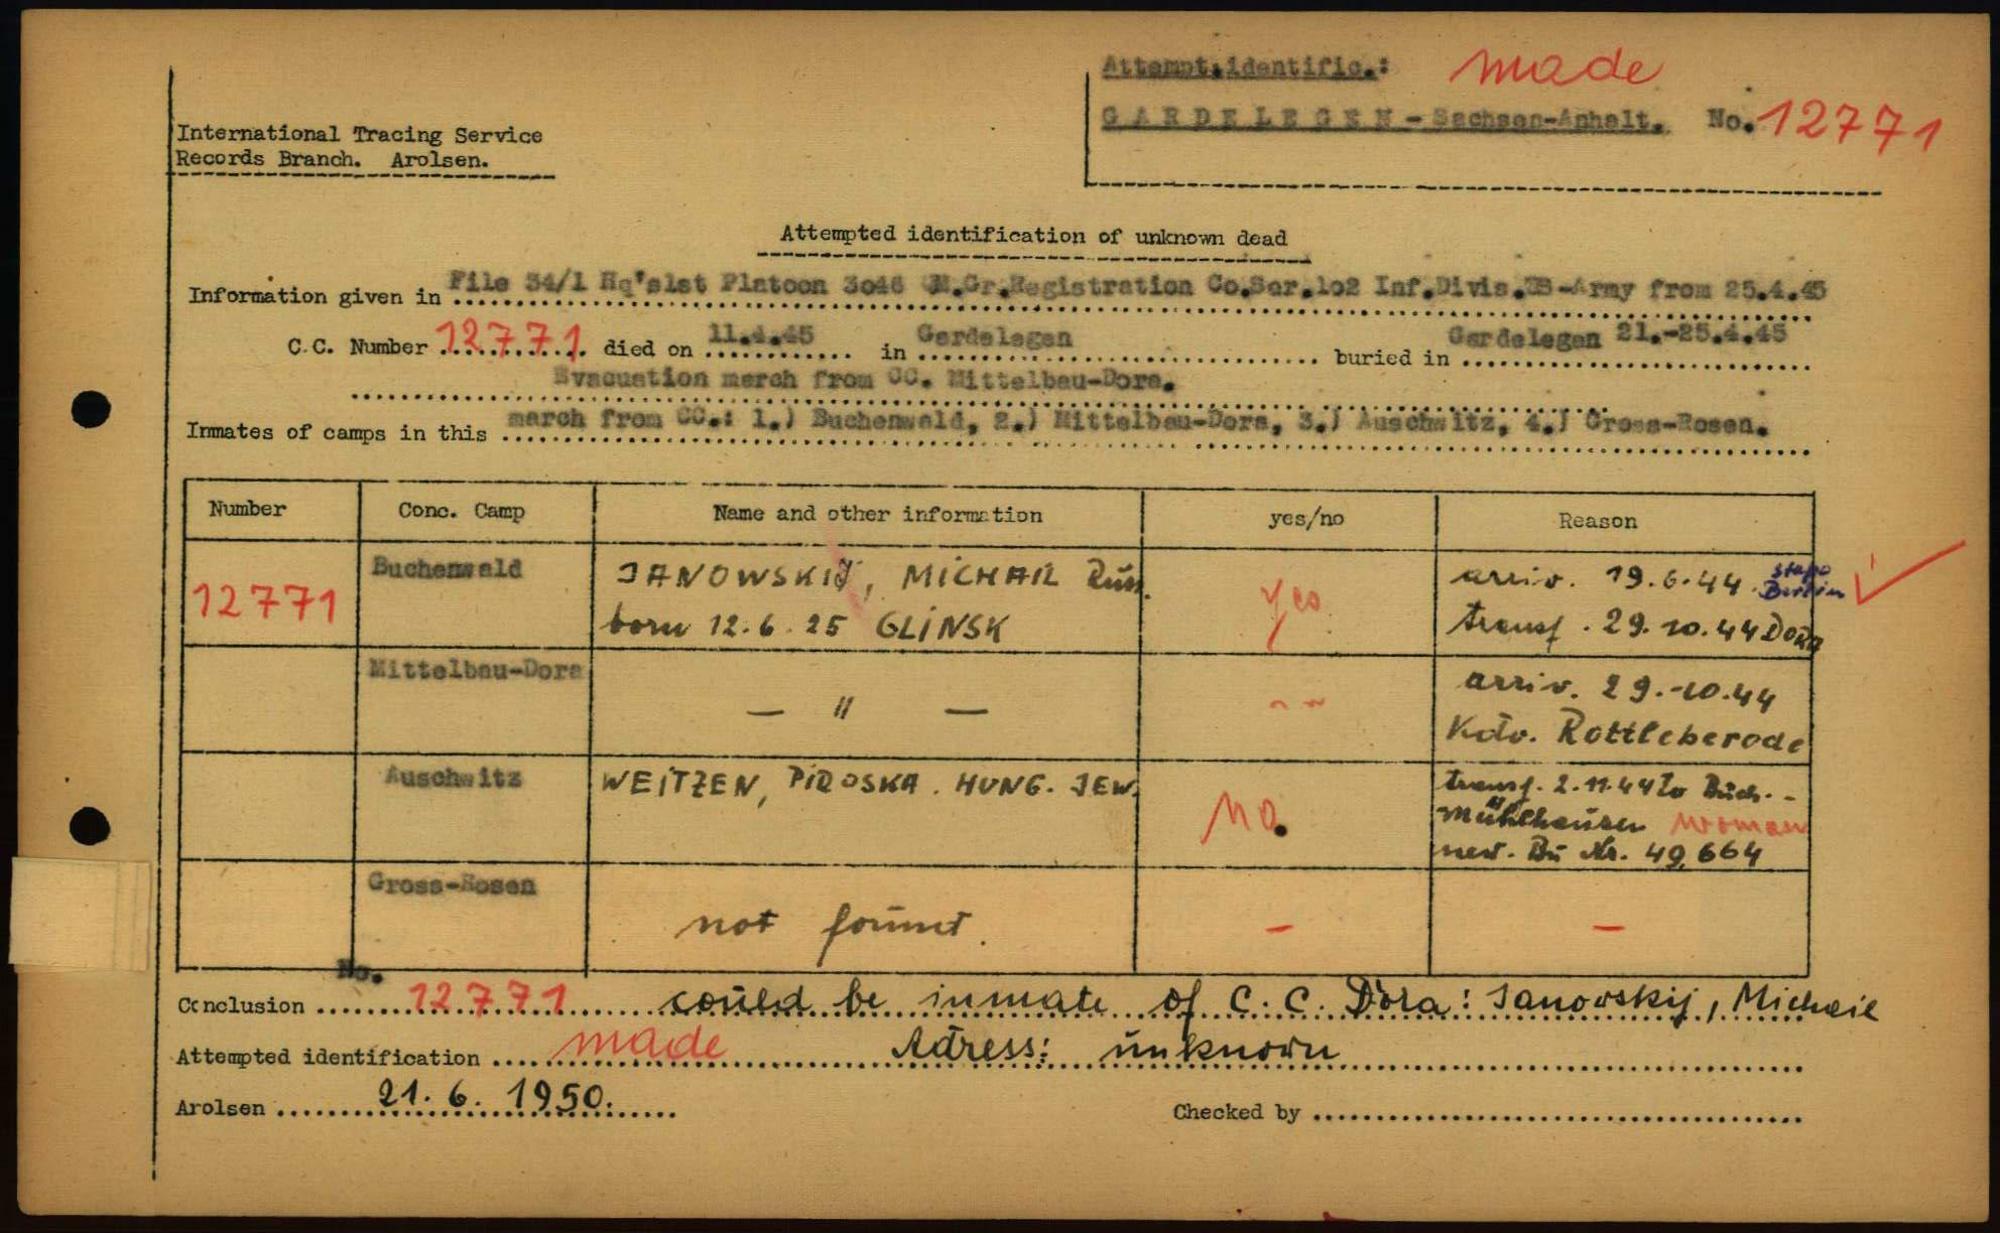 Attempt.identific.: made
GARDELEGEN - Sachsen-Anhalt. No. 12771
International Tracing Service
Records Branch. Arolsen.
Attempted identification of unknown dead
Information given in File 34/1 Hq's1st Platoon 3046 QM.Gr.Registration Co.Ser.1o2 Inf.Divis.US-Army from 25.4.45
C.C. Number 12771 died on 11.4.45 in Gardelegen buried in Gardelegen 21.-25.4.45
Evacuation march from CC. Mittelbau-Dora.
Inmates of camps in this march from CC.: 1.) Buchenwald, 2.) Mittelbau-Dora, 3.) Auschwitz, 4.) Gross-Rosen.
Number Conc. Camp Name and other information yes/no Reason
12771 Buchenwald JANOWSKIJ, MICHAIL Rus. yes arriv. 19.6.44 Stapo Berlin
born 12.6.25 GLINSK transf. 29.10.44 DORA
Mittelbau-Dora — " — arriv. 29.10.44
Kdo. Rottleberode
Auschwitz WEITZEN, PIROSKA. HUNG. JEW. no. transf. 2.11.44 to Buch.-
Mühlhausen woman
new. Bu Nr. 49,664
Gross-Rosen not found. - -
Conclusion No. 12771 could be inmate of C.C. Dora: Janowskij, Michail
Attempted identification made Adress: unknown
Arolsen 21. 6. 1950. Checked by